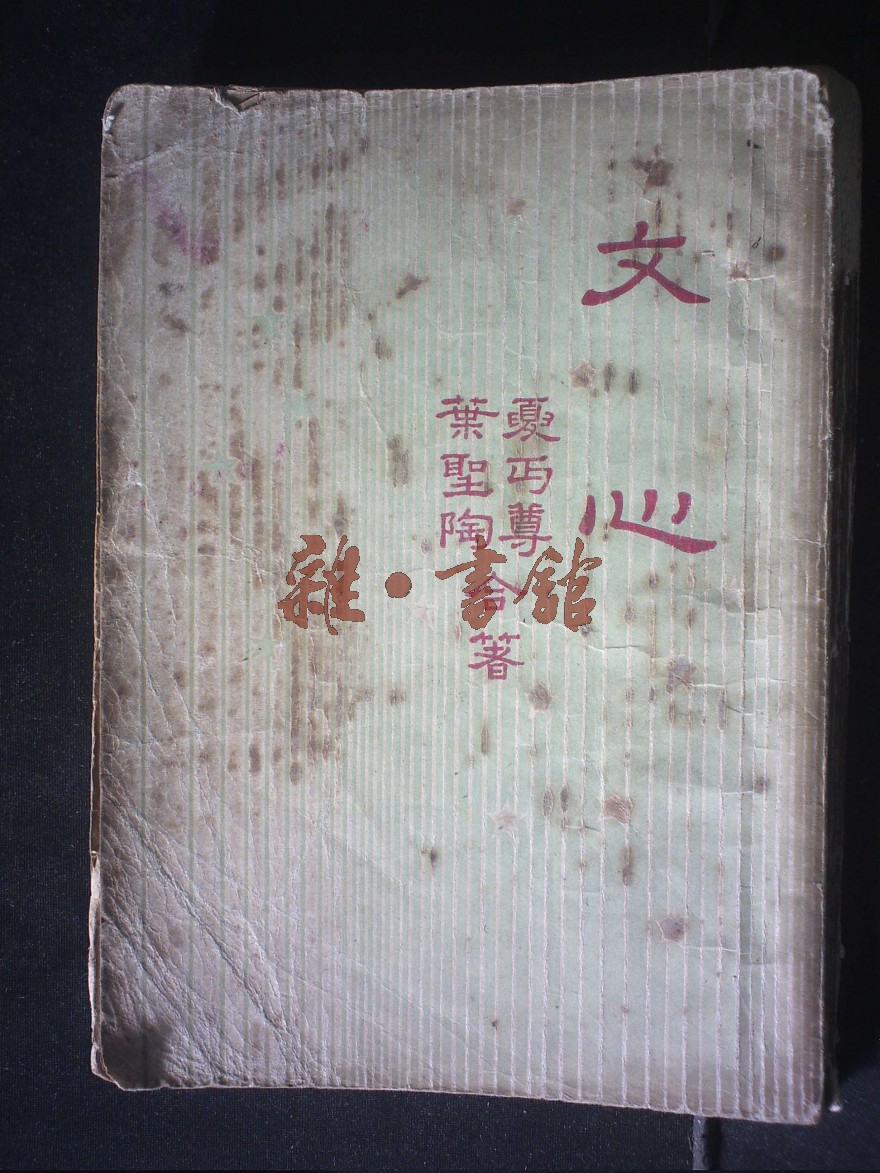 文心
夏丏尊
葉聖陶
合著
雜·書館